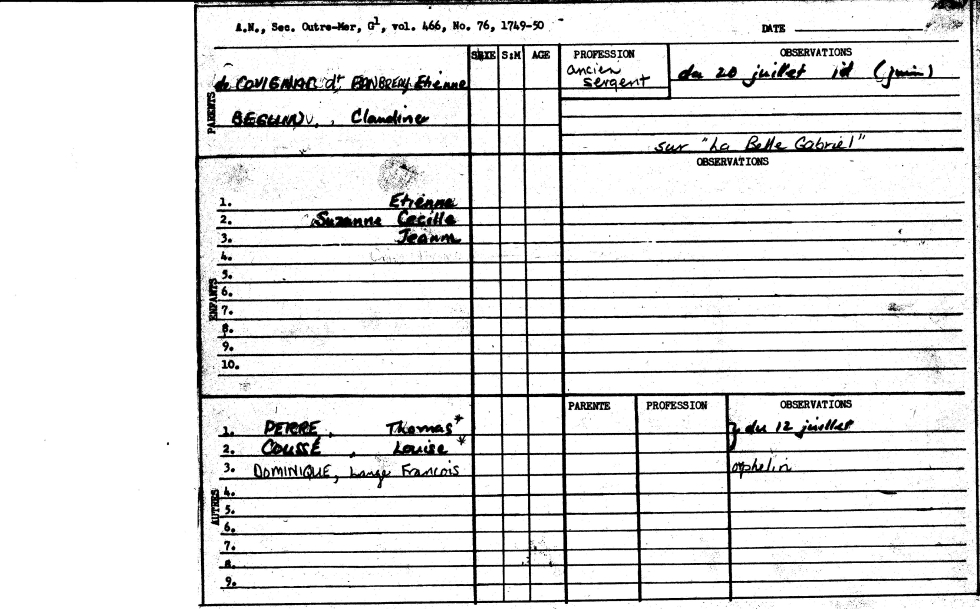 A.N., Sec. Outre-Mer, G¹, vol. 466, No. 76, 1749-50 DATE
SEXE S:M AGE PROFESSION OBSERVATIONS
de COVIGNAC dt Etienne ancien sergent du 20 juillet id (juin)
PARENTS
BEGUIN, Claudine
sur "La Belle Gabriel"
OBSERVATIONS
ENFANTS
1. Etienne
2. Suzanne Cecille
3. Jeanne
4.
5.
6.
7.
8.
9.
10.
PARENTE PROFESSION OBSERVATIONS
AUTRES
1. PEIRRE, Thomas* } du 12 juillet
2. COUSSÉ, Louise*
3. DOMINIQUE, Lange Francois orphelin
4.
5.
6.
7.
8.
9.